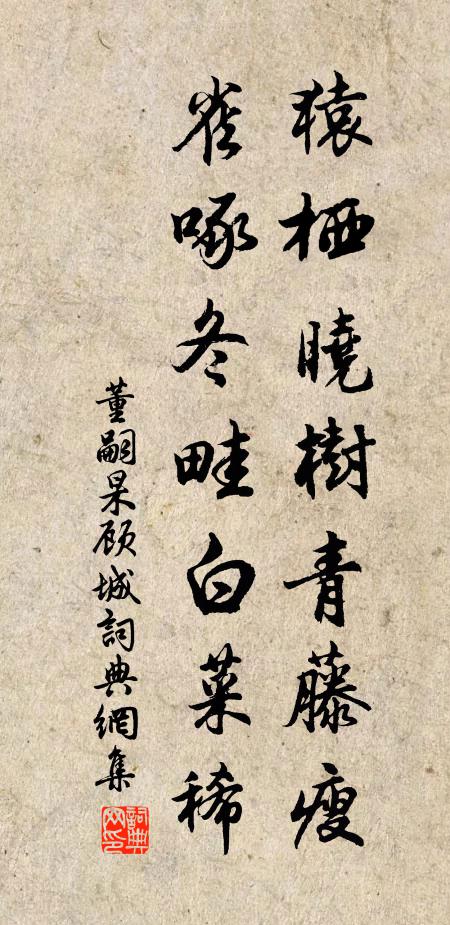 猿栖曉樹青藤瘦
雀啄冬畦白菜稀
董嗣杲顾城詞典網集
詞典网印